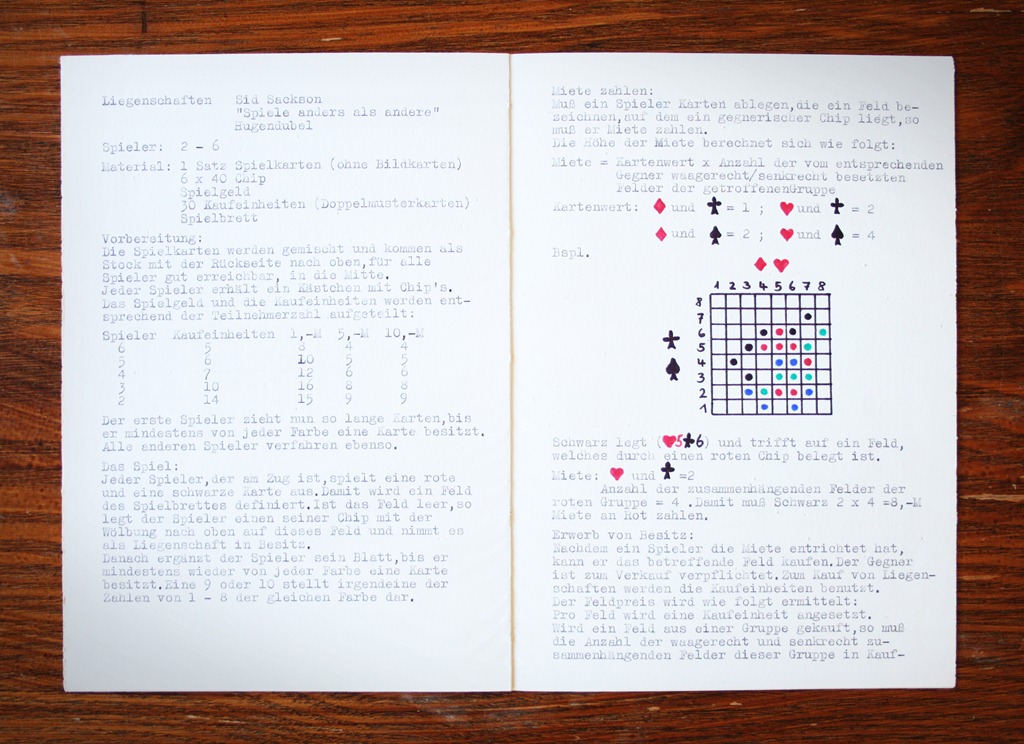 Liegenschaften   Sid Sackson
"Spiele anders als andere"
Hugendubel
Spieler:  2 - 6
Material: 1 Satz Spielkarten (ohne Bildkarten)
6 x 40 Chip
Spielgeld
30 Kaufeinheiten (Doppelmusterkarten)
Spielbrett
Vorbereitung:
Die Spielkarten werden gemischt und kommen als
Stock mit der Rückseite nach oben,für alle
Spieler gut erreichbar, in die Mitte.
Jeder Spieler erhält ein Kästchen mit Chip's.
Das Spielgeld und die Kaufeinheiten werden ent-
sprechend der Teilnehmerzahl aufgeteilt:
Spieler  Kaufeinheiten  1,-M  5,-M  10,-M
6  5  8  4  4
5  6  10  5  5
4  7  12  6  6
3  10  16  8  8
2  14  15  9  9
Der erste Spieler zieht nun so lange Karten,bis
er mindestens von jeder Farbe eine Karte besitzt.
Alle anderen Spieler verfahren ebenso.
Das Spiel:
Jeder Spieler,der am Zug ist,spielt eine rote
und eine schwarze Karte aus.Damit wird ein Feld
des Spielbrettes definiert.Ist das Feld leer,so
legt der Spieler einen seiner Chip mit der
Wölbung nach oben auf dieses Feld und nimmt es
als Liegenschaft in Besitz.
Danach ergänzt der Spieler sein Blatt,bis er
mindestens wieder von jeder Farbe eine Karte
besitzt.Eine 9 oder 10 stellt irgendeine der
Zahlen von 1 - 8 der gleichen Farbe dar.
Miete zahlen:
Muß ein Spieler Karten ablegen,die ein Feld be-
zeichnen,auf dem ein gegnerischer Chip liegt,so
muß er Miete zahlen.
Die Höhe der Miete berechnet sich wie folgt:
Miete = Kartenwert x Anzahl der vom entsprechenden
Gegner waagerecht/senkrecht besetzten
Felder der getroffenenGruppe
Kartenwert: ♦ und ♣ = 1 ; ♥ und ♣ = 2
♦ und ♠ = 2 ; ♥ und ♠ = 4
Bspl.
♦ ♥
1 2 3 4 5 6 7 8
8
7
6
♣ 5
♠ 4
3
2
1
Schwarz legt (♥5♣6) und trifft auf ein Feld,
welches durch einen roten Chip belegt ist.
Miete: ♥ und ♣ =2
Anzahl der zusammenhängenden Felder der
roten Gruppe = 4 .Damit muß Schwarz 2 x 4 =8,-M
Miete an Rot zahlen.
Erwerb von Besitz:
Nachdem ein Spieler die Miete entrichtet hat,
kann er das betreffende Feld kaufen.Der Gegner
ist zum Verkauf verpflichtet.Zum Kauf von Liegen-
schaften werden die Kaufeinheiten benutzt.
Der Feldpreis wird wie folgt ermittelt:
Pro Feld wird eine Kaufeinheit angesetzt.
Wird ein Feld aus einer Gruppe gekauft,so muß
die Anzahl der waagerecht und senkrecht zu-
sammenhängenden Felder dieser Gruppe in Kauf-